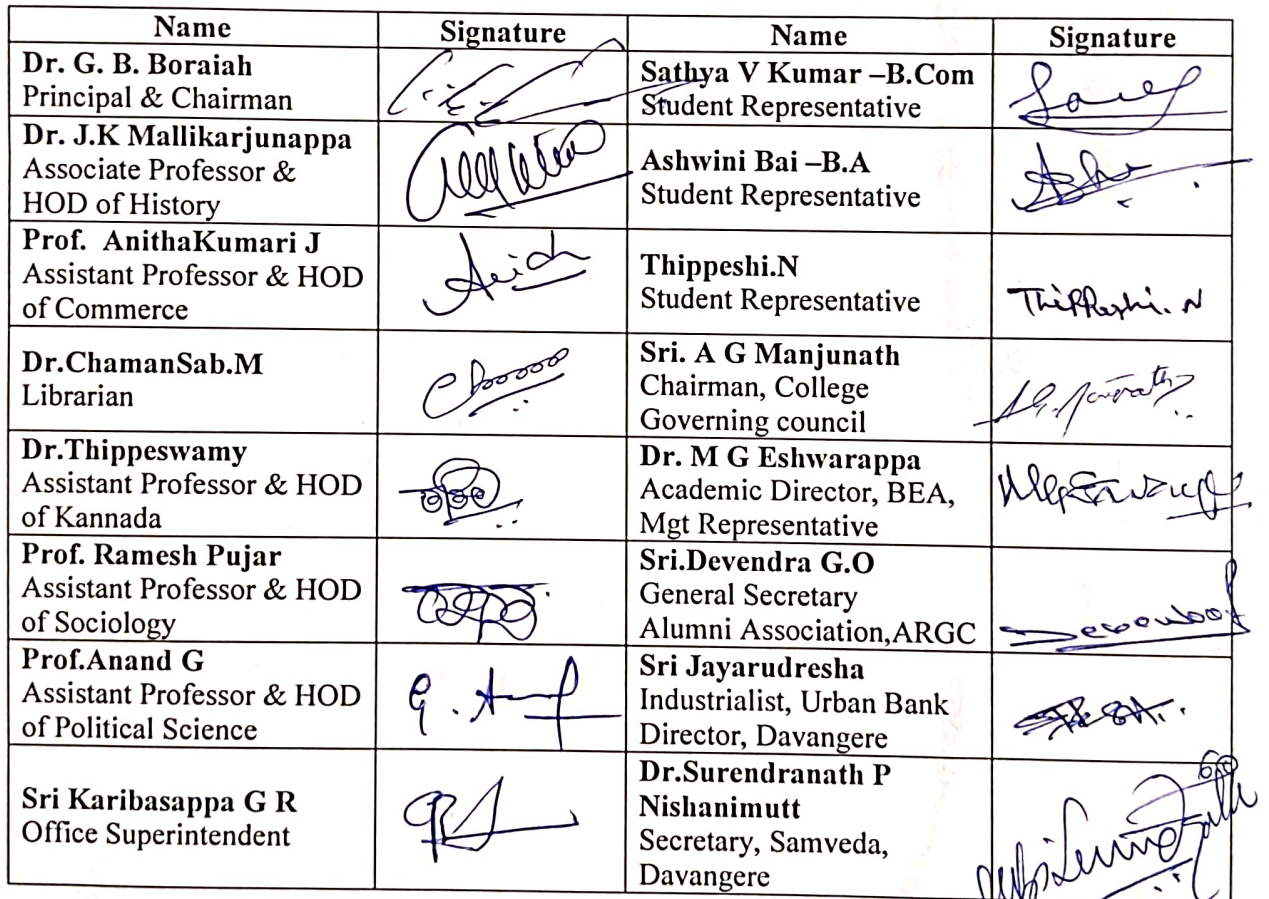 Name Signature Name Signature
Dr. G. B. Boraiah
Principal & Chairman
Sathya V Kumar –B.Com
Student Representative
Dr. J.K Mallikarjunappa
Associate Professor &
HOD of History
Ashwini Bai –B.A
Student Representative
Prof. AnithaKumari J
Assistant Professor & HOD
of Commerce
Thippeshi.N
Student Representative
Thippeshi. N
Dr.ChamanSab.M
Librarian
Sri. A G Manjunath
Chairman, College
Governing council
Dr.Thippeswamy
Assistant Professor & HOD
of Kannada
Dr. M G Eshwarappa
Academic Director, BEA,
Mgt Representative
Prof. Ramesh Pujar
Assistant Professor & HOD
of Sociology
Sri.Devendra G.O
General Secretary
Alumni Association,ARGC
Prof.Anand G
Assistant Professor & HOD
of Political Science
Sri Jayarudresha
Industrialist, Urban Bank
Director, Davangere
Sri Karibasappa G R
Office Superintendent
Dr.Surendranath P
Nishanimutt
Secretary, Samveda,
Davangere